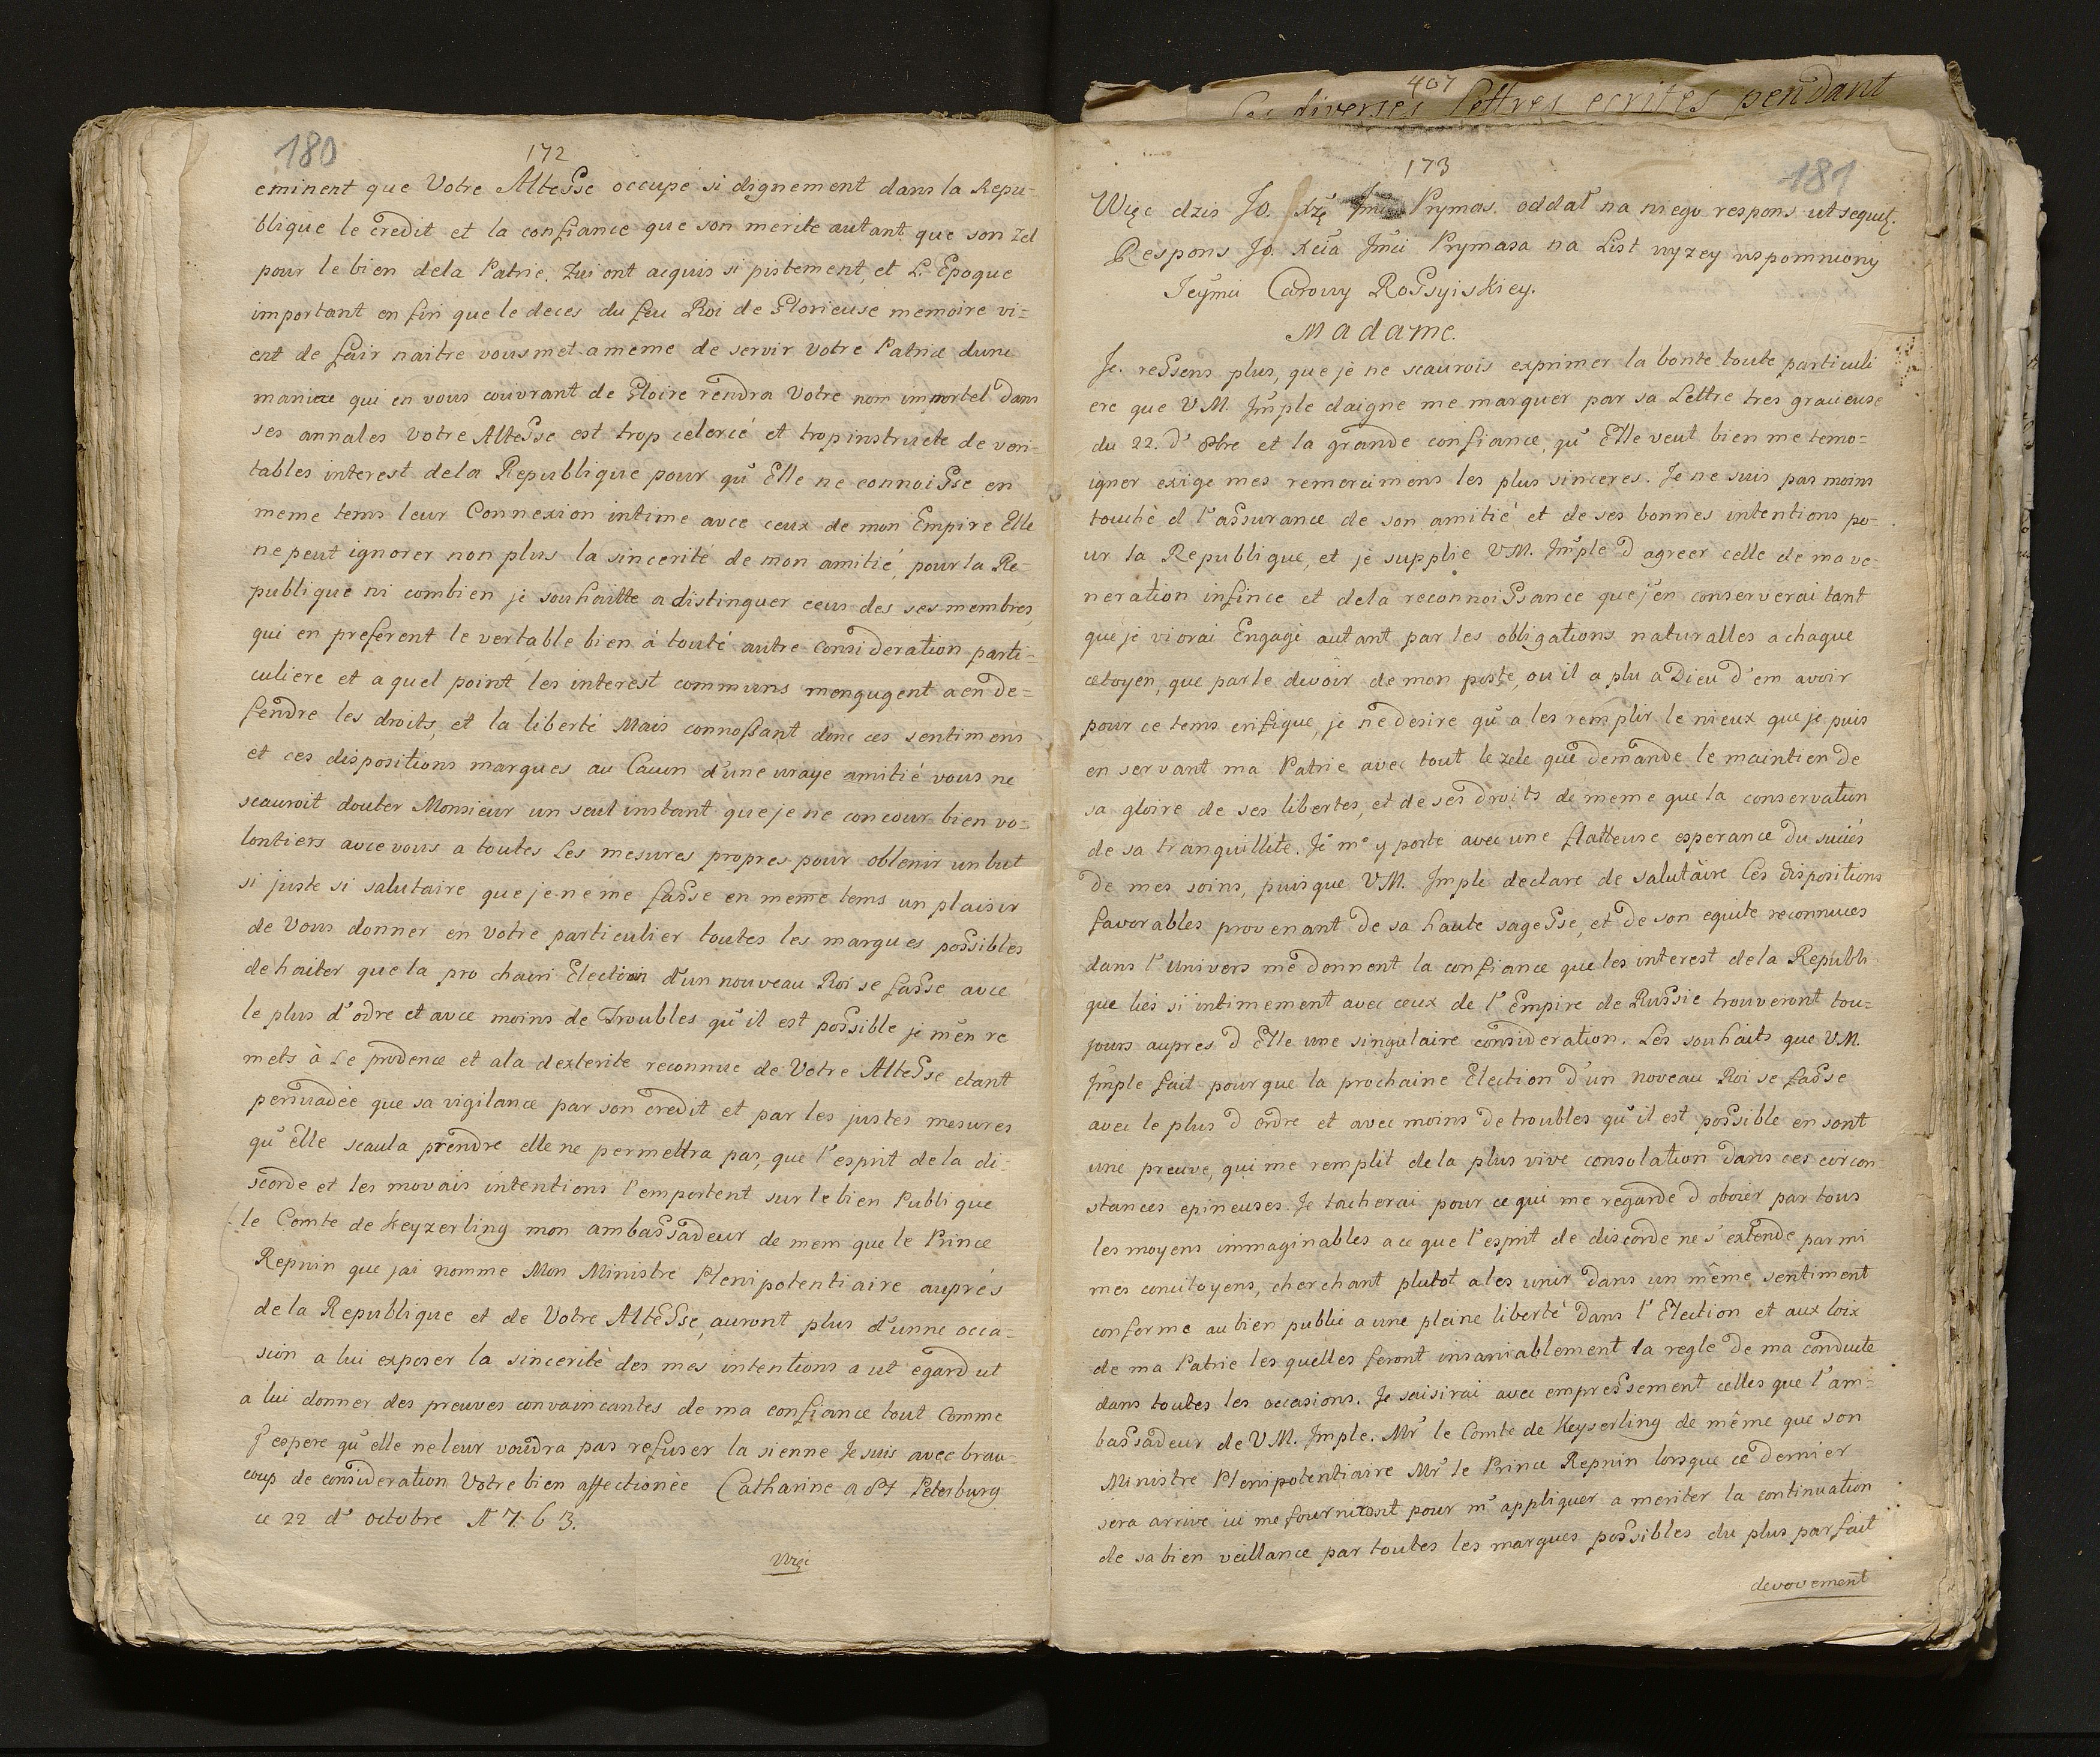 180
172
eminent que Votre Altesse occupe si dignement dans la Repu=
blique le credit et la confiance que son merite autant que son zel
pour le bien dela Patrie. Lui ont acquis si pistement, et L. Epoque
important en fin que le deces du feu Roi de Glorieuse memoire vi=
ent de fair naitre vous met a meme de servir votre Patrie dune
maniere qui en vous couvrant de Gloire rendra Votre nom immortel dans
ses annales Votre Altesse est trop celercé et trop instruete de veri-
tables interest dela Republique pour qu'Elle ne connoisse en
meme tems leur Connexion intime avec ceux de mon Empire Elle
ne peut ignorer non plus la sincerité de mon amitié, pour la Re-
publique ni combien je souhaitte a distinguer ceus des ses membres,
qui en preferent le vertable bien á touté autre Consideration parti=
culiere et a quel point les interest communs mengugent a en de=
fendre les droits, et la liberté Mais connossant donc ces sentimens
et ces dispositions margues au Cauın d'une vraye amitié vous ne
scauroit douter Monsieur un seul instant que je ne concour bien vo=
lontiers avec vous a toutes Les mesures propres pour obtenir un but
si juste si salutaire que je ne me fasse en meme tems un plaisir
de Vous donner en votre particulier toutes les margues possibles
de haiter que la pro chain Election d'un nouveau Roi se fasse avec
le plus d'odre et avec moins de Troubles qu'il est possible je m'en re
mets à Le prudence et ala dexterite reconnue de Votre Altesse etant
persuadée que sa vigilance par son credit et par les justes mesures
qu'Elle scaula prendre elle ne permettra pas, que l'esprit de la di=
scorde et les movais intentions l'emportent sur le bien Publique
le Comte de Keyzerling mon ambassadeur de mem que le Prince
Repnin que jai nomme Mon Ministre Plenipotentiaire auprés
de la Republique et de Votre Altesse, auront plus d'unne occa=
sion a lui exposer la sincerité des mes intentions a ut egard ut
a lui donner des preuves convaincantes de ma confiance tout Comme
j'espere qu'elle ne leur voudra pas refuser la sienne Je suis avec brau=
coup de consideration Votre bien affectionée Catharine a St Petersburg
ce 22 d'octobre A 7.6 3.
Więc
407
diverses lettres ecrites pendant
173
181
Więc dzis Jo. Xżę Jmć Prymas. oddał na niego respons ut sequit.
Respons Jo. Xcia Jmci Prymasa na List wyzey wspomniony
Jeymci Carowy Rossyiskiey.
Madame.
Je ressens plus, que je ne scaurois exprimer la bonte toute particuli
ere que VM. Jmple daigne me marquer par sa Lettre tres gracieuse
du 22. d' 8bre et la grande confiance, qu'Elle veut bien me temo=
igner exige mes remercimens les plus sinceres. Je ne suis pas moins
touché d l'assurance de son amitié et de ses bonnes intentions po=
ur la Republique, et je supplie VM. Jmple d agreer celle de ma ve=
neration infince et dela reconnoissance que j'en conserverai tant
que je viorai Engagé autant par les obligations naturalles a chaque
cetoyen, que par le devoir de mon poste, ou il a plu a Dieu d'em avoir
pour ce tems enfique, je ne desire qu'a les remplir le mieux que je puis
en servant ma Patrie avec tout le zele que demande le maintien de
sa gloire de ses libertes, et de ses droits de meme que la conservatun
de sa tranquillite. Je m'e y porte avec une flatteuse esperance du succés
de mes soins, puisque VM. Jmple declare de salutaire Ces dispositions
favorables provenant de sa haute sagesse, et de son equite reconnuces
dans l'Univers me donnent la confiance que les interest dela Republi
que liés si intimement avec ceux de l'Empire de Russie trouveront tou=
jours aupres d'Elle une singulaire consideration. Les souhaits que VM.
Jmple fait pour que la prochaine Election d'un noveau Roi se fasse
avec le plus d ordre et avec moins de troubles qu'il est possible en sont
une preuve, qui me remplit dela plus vive consolation dans ces circon-
stances epineuses. Je tacherai pour ce qui me regarde d oboier par tous
les moyens immaginables a ce que l'esprit de discorde ne s'extende parmi
mes concitoyens, cherchant plutot a les unir dans un même sentiment
conforme au bien public a une pleine liberté dans l'Election et aux loix
de ma Patrie les quelles feront insaniablement la regle de ma conduite
dans toutes les occasions. Je saisirai avec empressement celles que l'am=
bassadeur de VM. Jmple. Mr le Comte de Keyserling de même que son
Ministre Plenipotentiaire Mr le Prince Repnin lorsque ce dernier
sera arrive ici me fourniront pour m'appliquer a meriter la continuation
de sa bien veillance par toutes les marques possibles du plus parfait
devovement